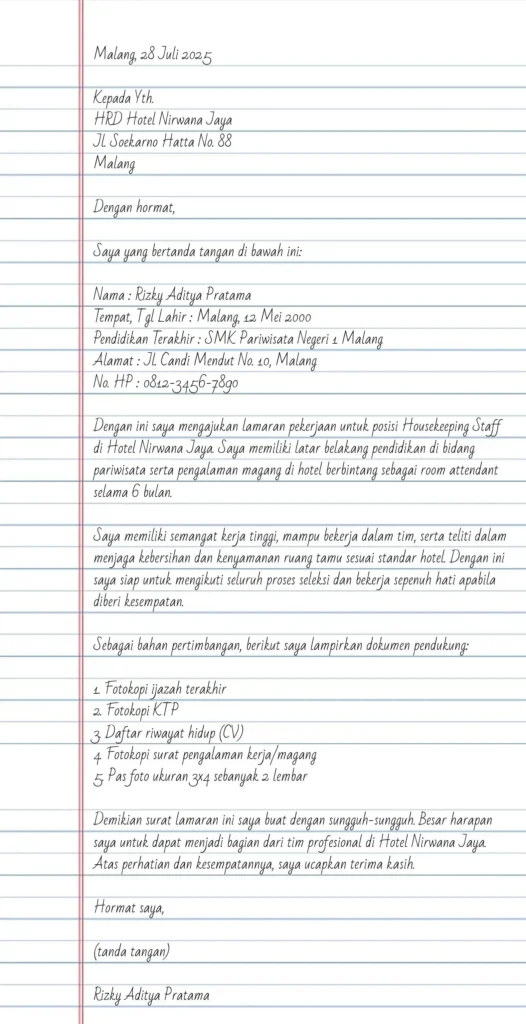 Malang, 28 Juli 2025
Kepada Yth.
HRD Hotel Nirwana Jaya
Jl. Soekarno Hatta No. 88
Malang
Dengan hormat,
Saya yang bertanda tangan di bawah ini:
Nama : Rizky Aditya Pratama
Tempat, Tgl Lahir : Malang, 12 Mei 2000
Pendidikan Terakhir : SMK Pariwisata Negeri 1 Malang
Alamat : Jl. Candi Mendut No. 10, Malang
No. HP : 0812-3456-7890
Dengan ini saya mengajukan lamaran pekerjaan untuk posisi Housekeeping Staff
di Hotel Nirwana Jaya. Saya memiliki latar belakang pendidikan di bidang
pariwisata serta pengalaman magang di hotel berbintang sebagai room attendant
selama 6 bulan.
Saya memiliki semangat kerja tinggi, mampu bekerja dalam tim, serta teliti dalam
menjaga kebersihan dan kenyamanan ruang tamu sesuai standar hotel. Dengan ini
saya siap untuk mengikuti seluruh proses seleksi dan bekerja sepenuh hati apabila
diberi kesempatan.
Sebagai bahan pertimbangan, berikut saya lampirkan dokumen pendukung:
1. Fotokopi ijazah terakhir
2. Fotokopi KTP
3. Daftar riwayat hidup (CV)
4. Fotokopi surat pengalaman kerja/magang
5. Pas foto ukuran 3x4 sebanyak 2 lembar
Demikian surat lamaran ini saya buat dengan sungguh-sungguh. Besar harapan
saya untuk dapat menjadi bagian dari tim profesional di Hotel Nirwana Jaya.
Atas perhatian dan kesempatannya, saya ucapkan terima kasih.
Hormat saya,
(tanda tangan)
Rizky Aditya Pratama